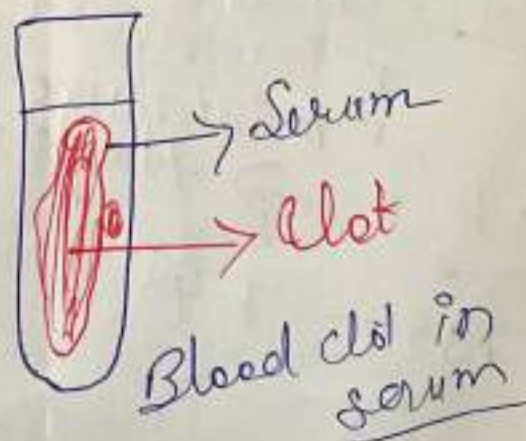 Serum
Clot
Blood clot in
serum